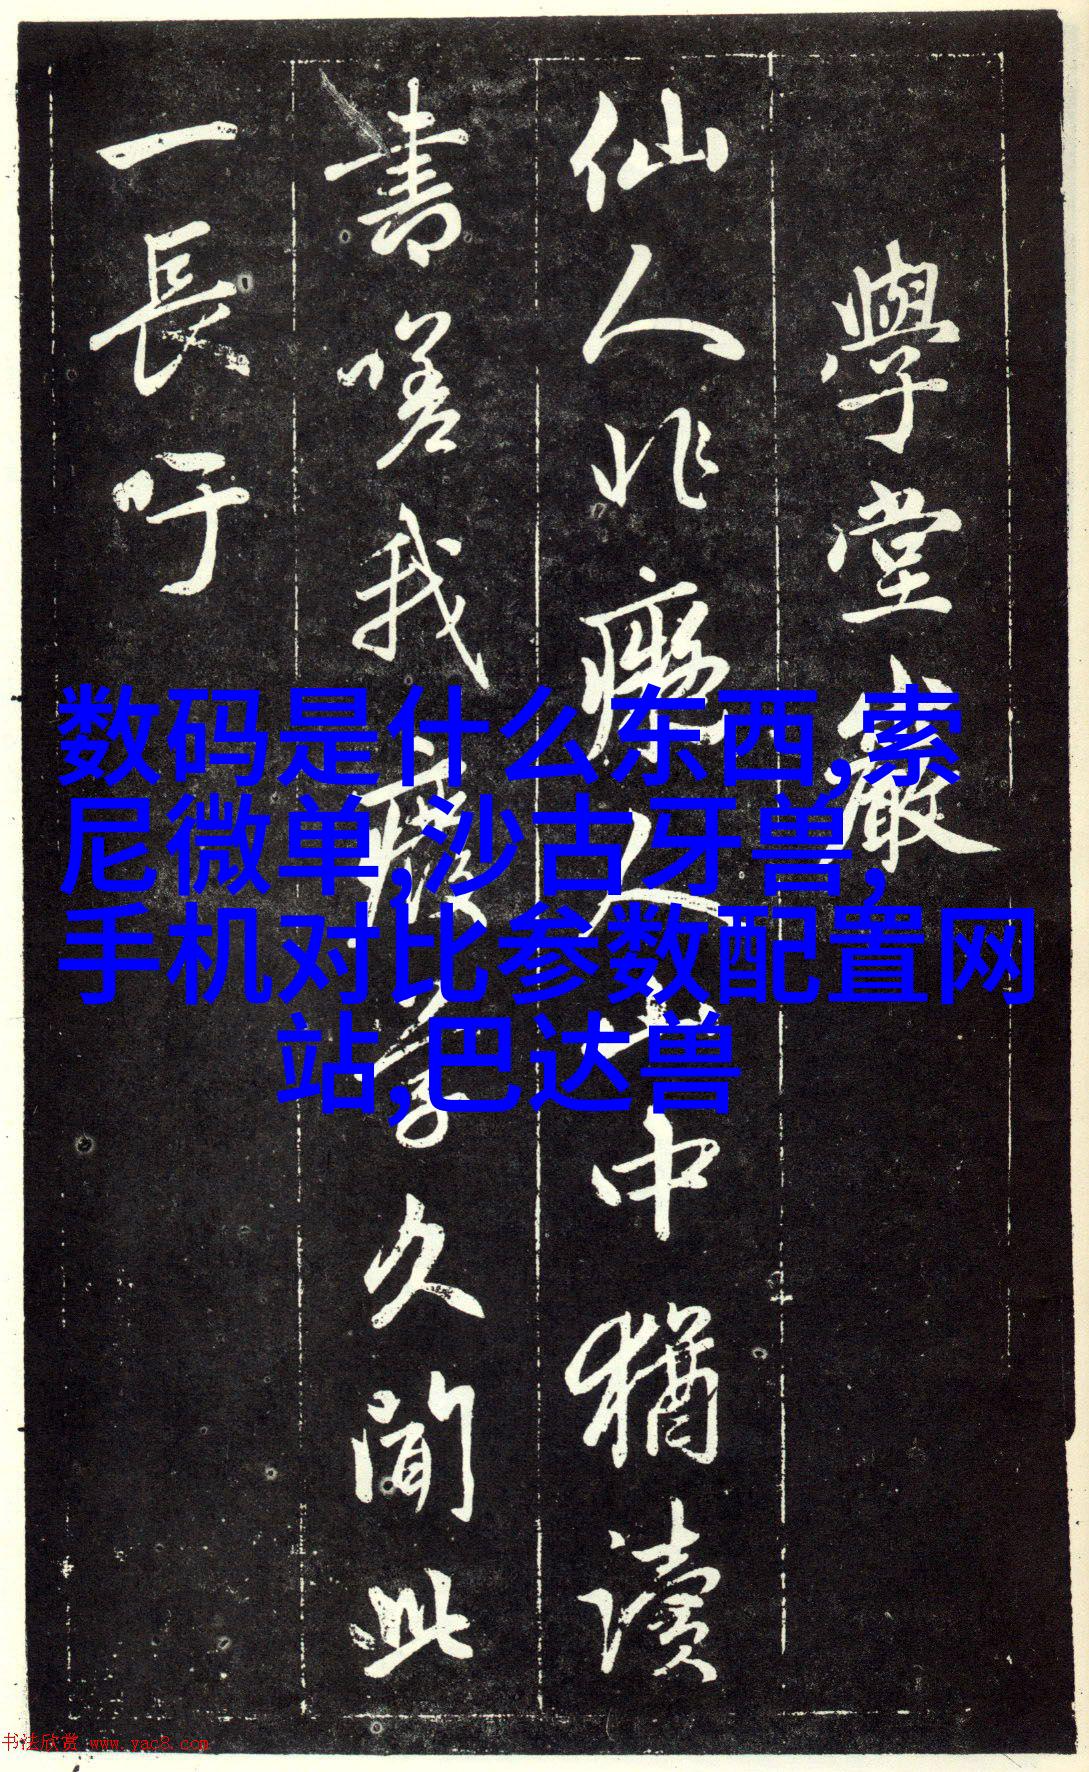 學堂巖
仙人非癡人山中猶讀
書嗟我廢學久聞此
一長吁
数码是什么东西,索
尼微单,沙古牙兽,
手机对比参数配置网
站,巴达兽
书法欣赏 www.yac8.com